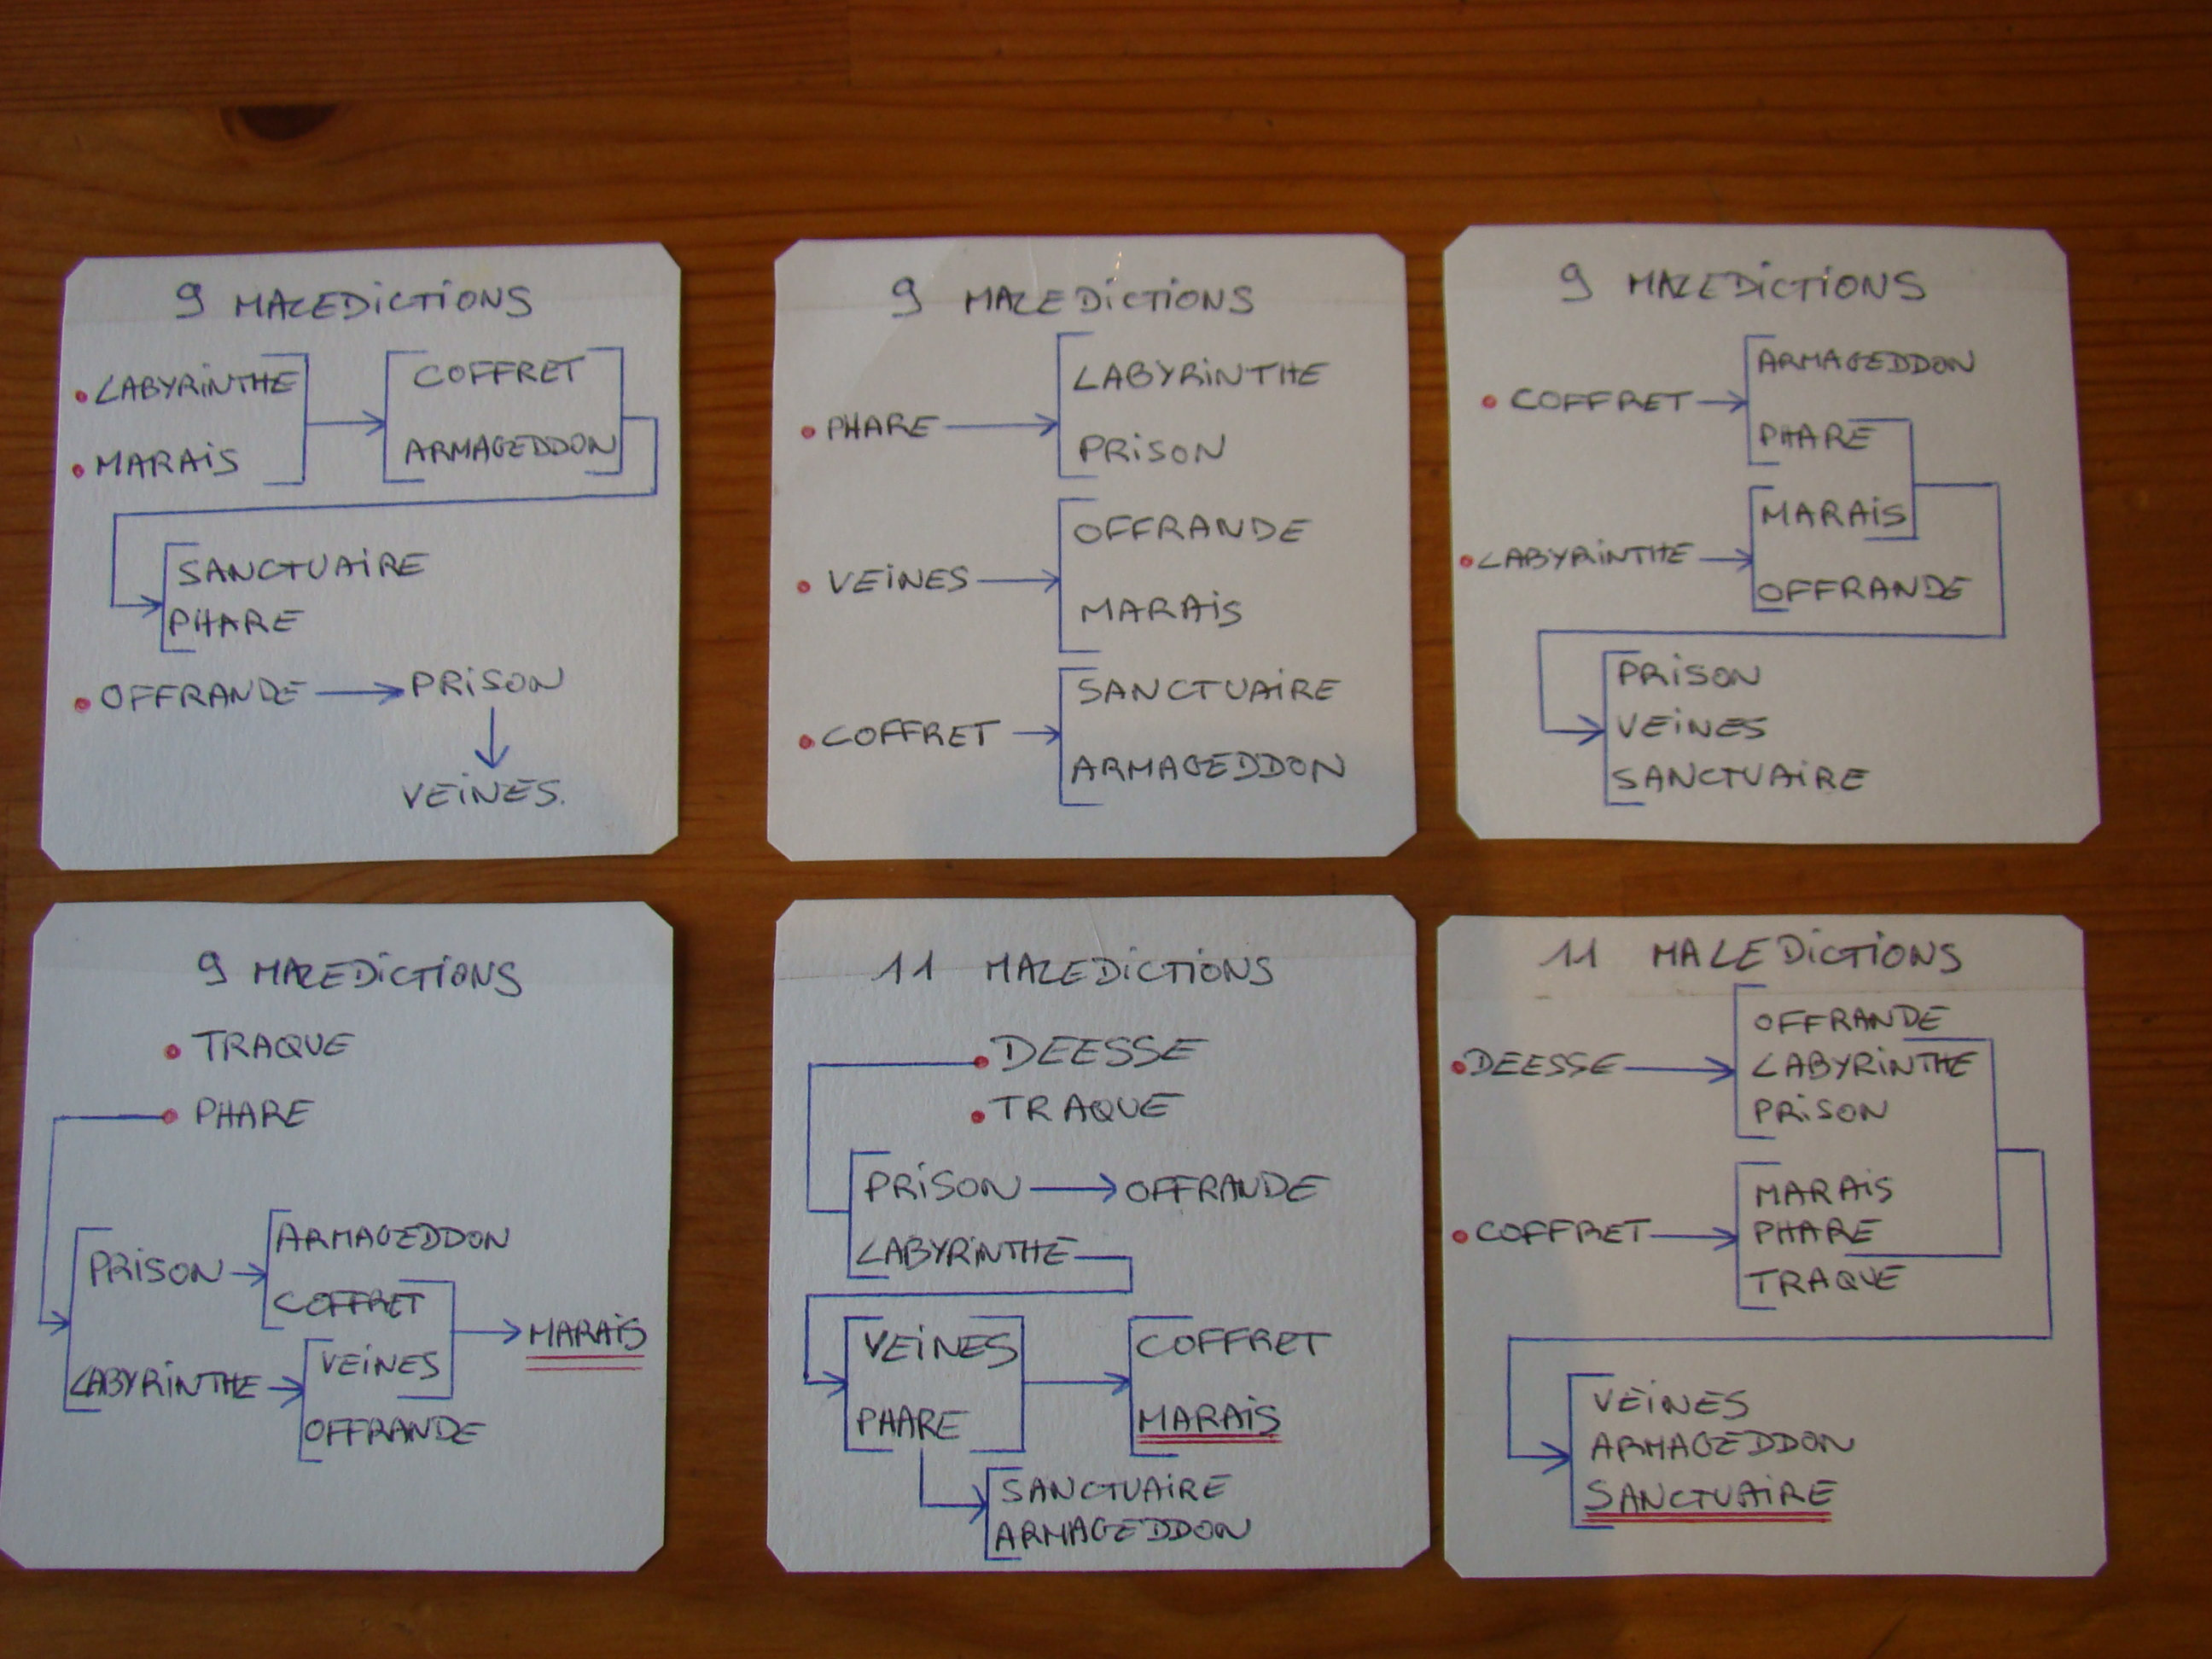 9 MALEDICTIONS
• LABYRINTHE
COFFRET
• MARAIS
ARMAGEDDON
SANCTUAIRE
PHARE
• OFFRANDE → PRISON
VEINES.
9 MALEDICTIONS
LABYRINTHE
• PHARE →
PRISON
OFFRANDE
• VEINES →
MARAIS
SANCTUAIRE
• COFFRET →
ARMAGEDDON
9 MALEDICTIONS
ARMAGEDDON
• COFFRET →
PHARE
MARAIS
• LABYRINTHE →
OFFRANDE
PRISON
VEINES
SANCTUAIRE
9 MALEDICTIONS
• TRAQUE
• PHARE
ARMAGEDDON
PRISON →
COFFRET
→ MARAIS
VEINES
LABYRINTHE →
OFFRANDE
11 MALEDICTIONS
• DEESSE
• TRAQUE
PRISON → OFFRANDE
LABYRINTHE
VEINES
COFFRET
PHARE
MARAIS
SANCTUAIRE
ARMAGEDDON
11 MALEDICTIONS
OFFRANDE
• DEESSE → LABYRINTHE
PRISON
MARAIS
• COFFRET → PHARE
TRAQUE
VEINES
ARMAGEDDON
SANCTUAIRE